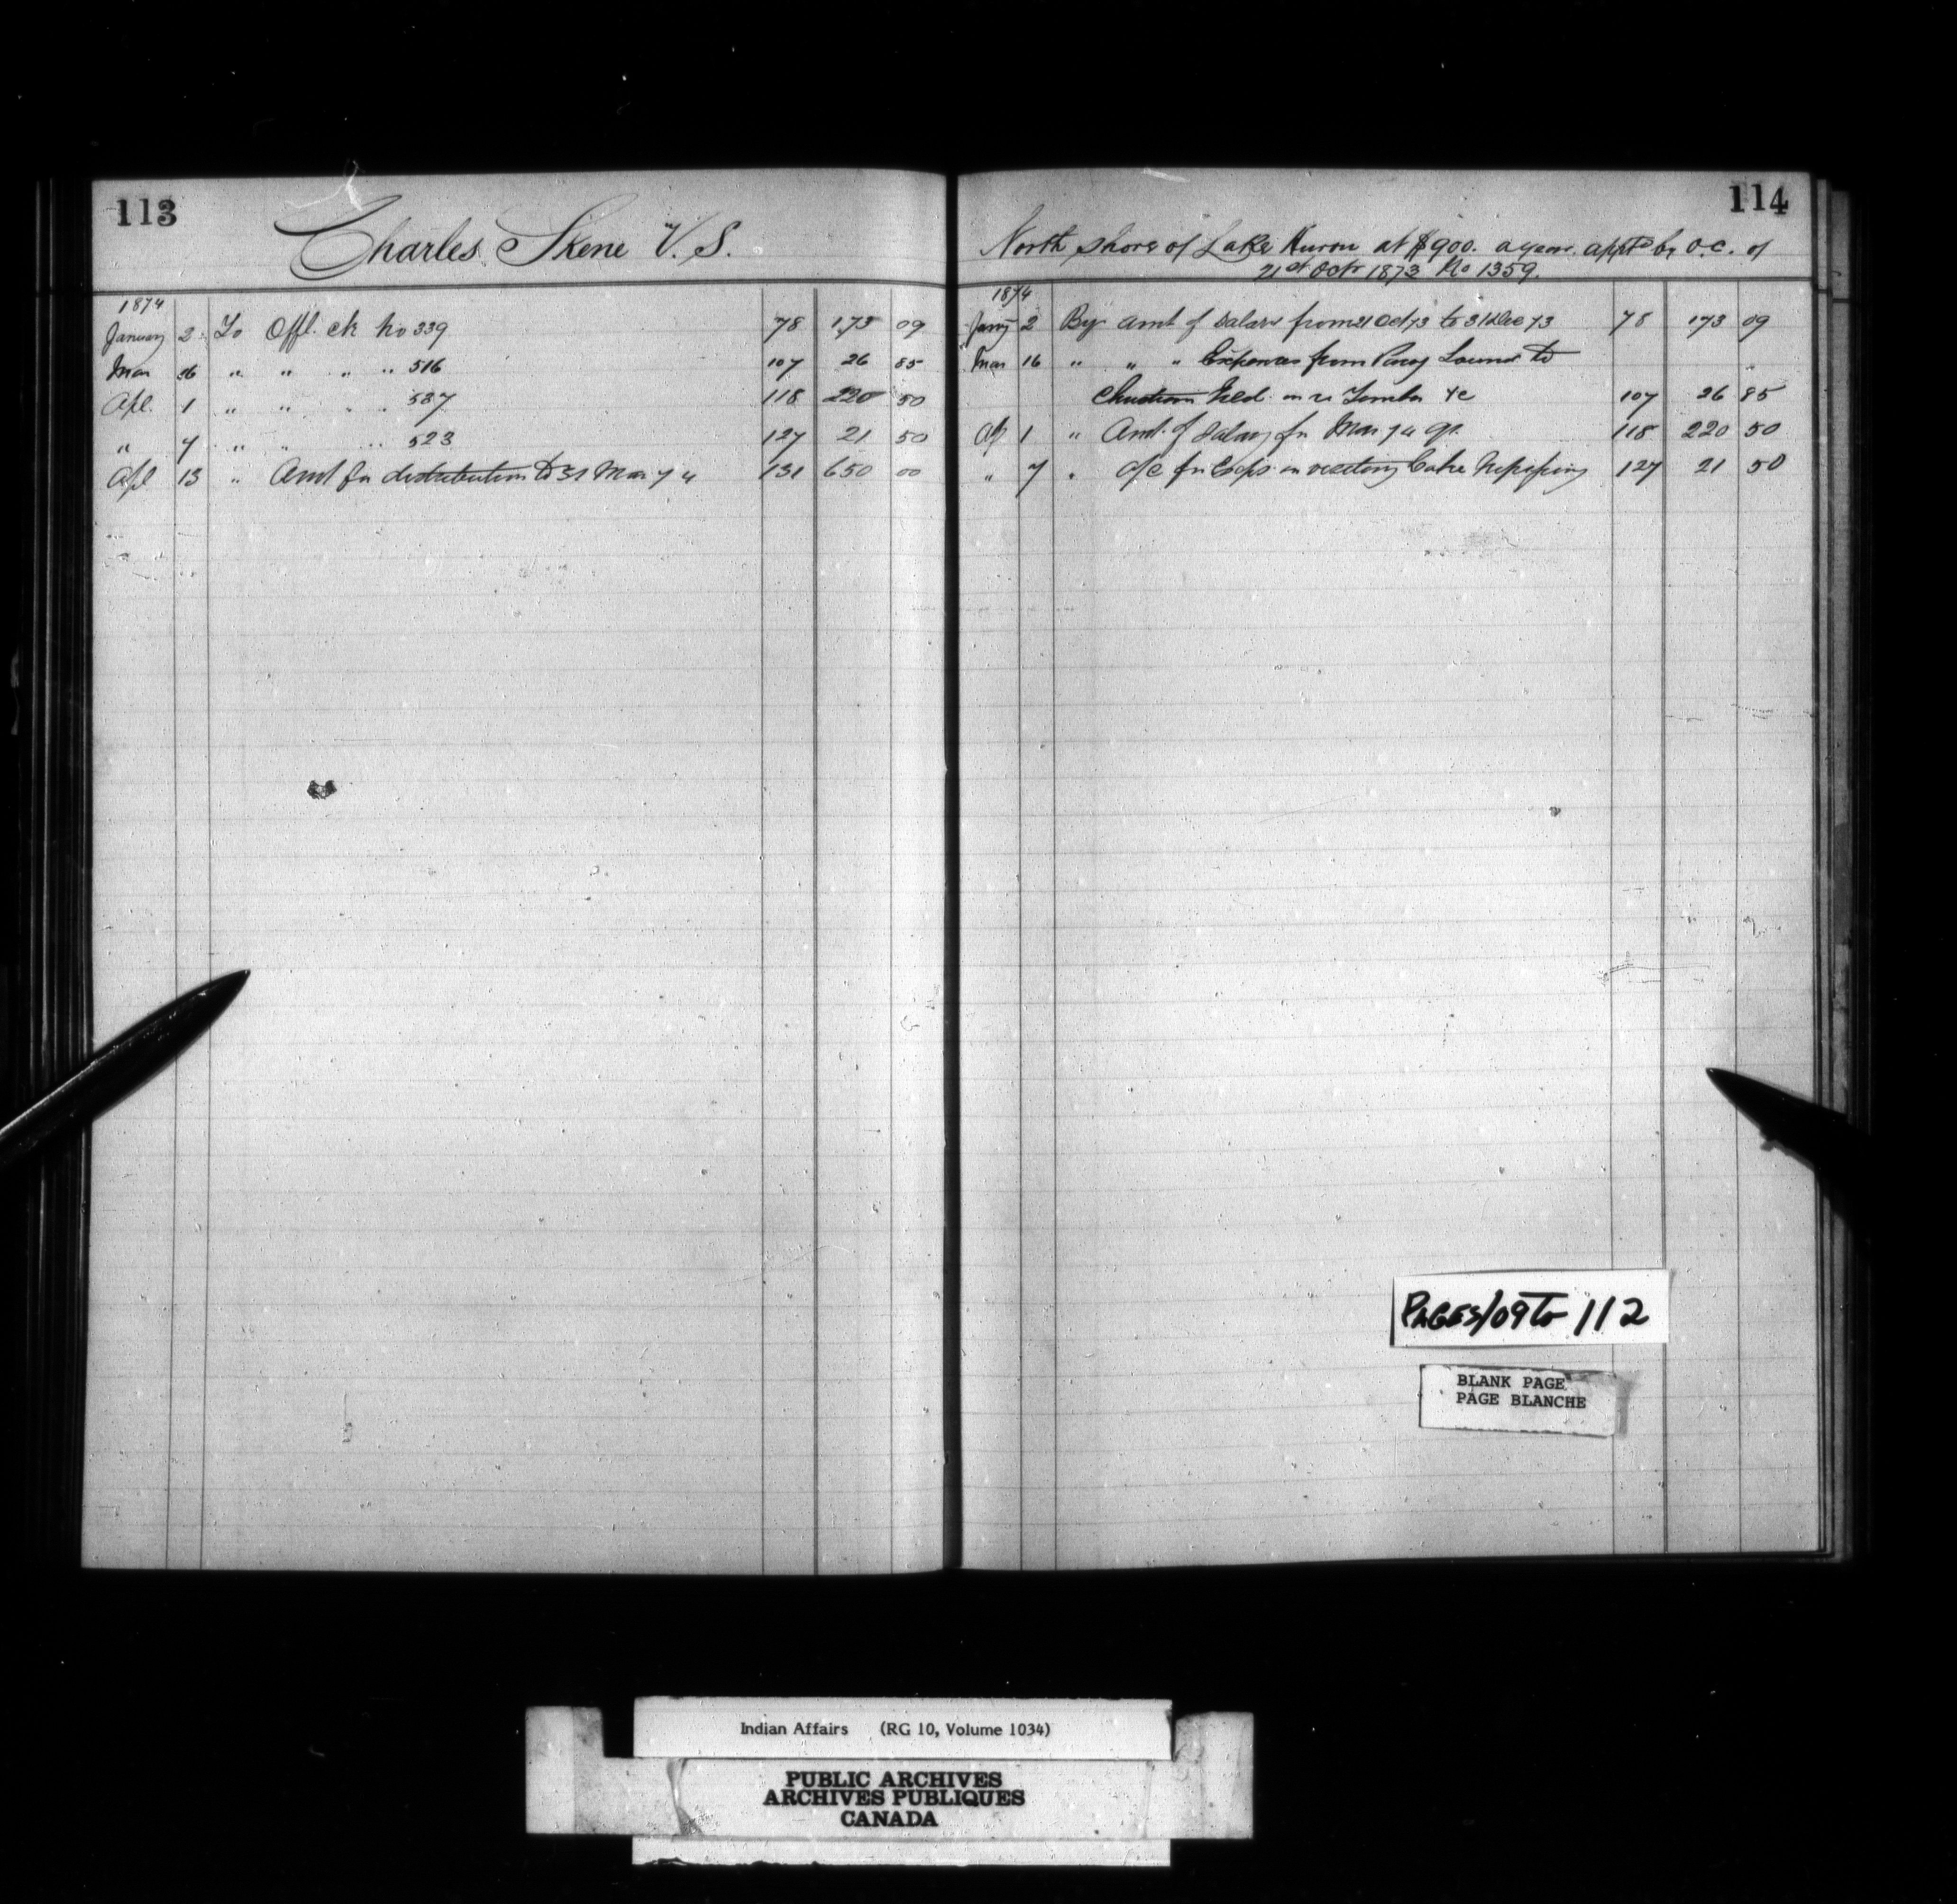 113
Charles Skene V.S.
1874
January 2 To Offl. ck No 339 78 173 09
Mar 16 " " " " 516 107 26 85
Apl. 1 " " " " 537 118 220 50
" 7 " " " " 523 127 21 50
Apl 13 " Amt for distribution to 31 Mar 74 131 650 00
114
North Shore of Lake Huron at $900. a year. apptd by O.C. of
21st Octr 1873 No 1359.
1874
Jany 2 By Amt of Salary from 21 Oct 73 to 31 Dec 73 78 173 09
Mar 16 " " " Expenses from Parry Sound to
Island in re Timber &c 107 26 85
Ap 1 " Amt. of Salary for Mar 74 qr. 118 220 50
" 7 " a/c for Exps in visiting Lake Nipissing 127 21 50
PAGES 109 to 112
BLANK PAGE
PAGE BLANCHE
Indian Affairs (RG 10, Volume 1034)
PUBLIC ARCHIVES
ARCHIVES PUBLIQUES
CANADA